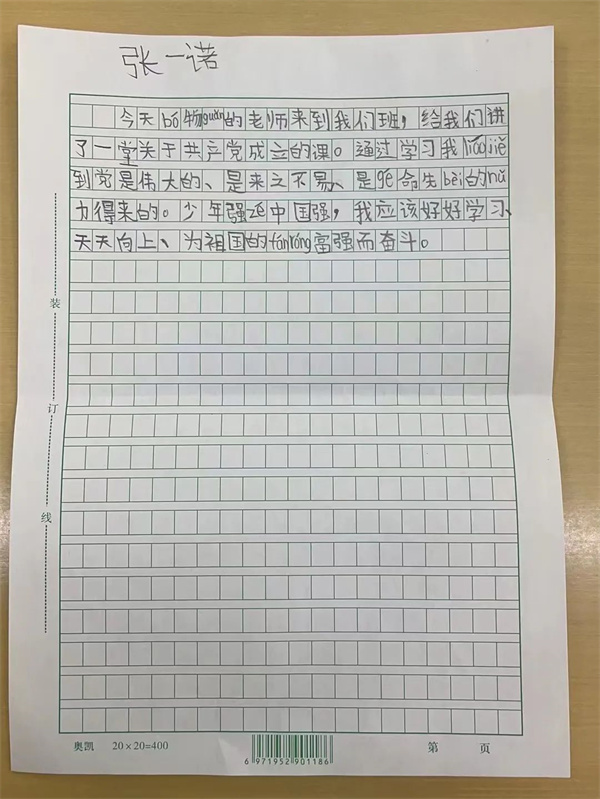 张一诺
今天bó物guǎn的老师来到我们班，给我们讲
了一堂关于共产党成立的课。通过学习我liǎojiě
到党是伟大的、是来之不易、是gé命先bèi的nǔ
力得来的。少年强zé中国强，我应该好好学习、
天天向上、为祖国的fánróng富强而奋斗。
装
订
线
奥凯 20×20=400 第 页
6 971952 901186